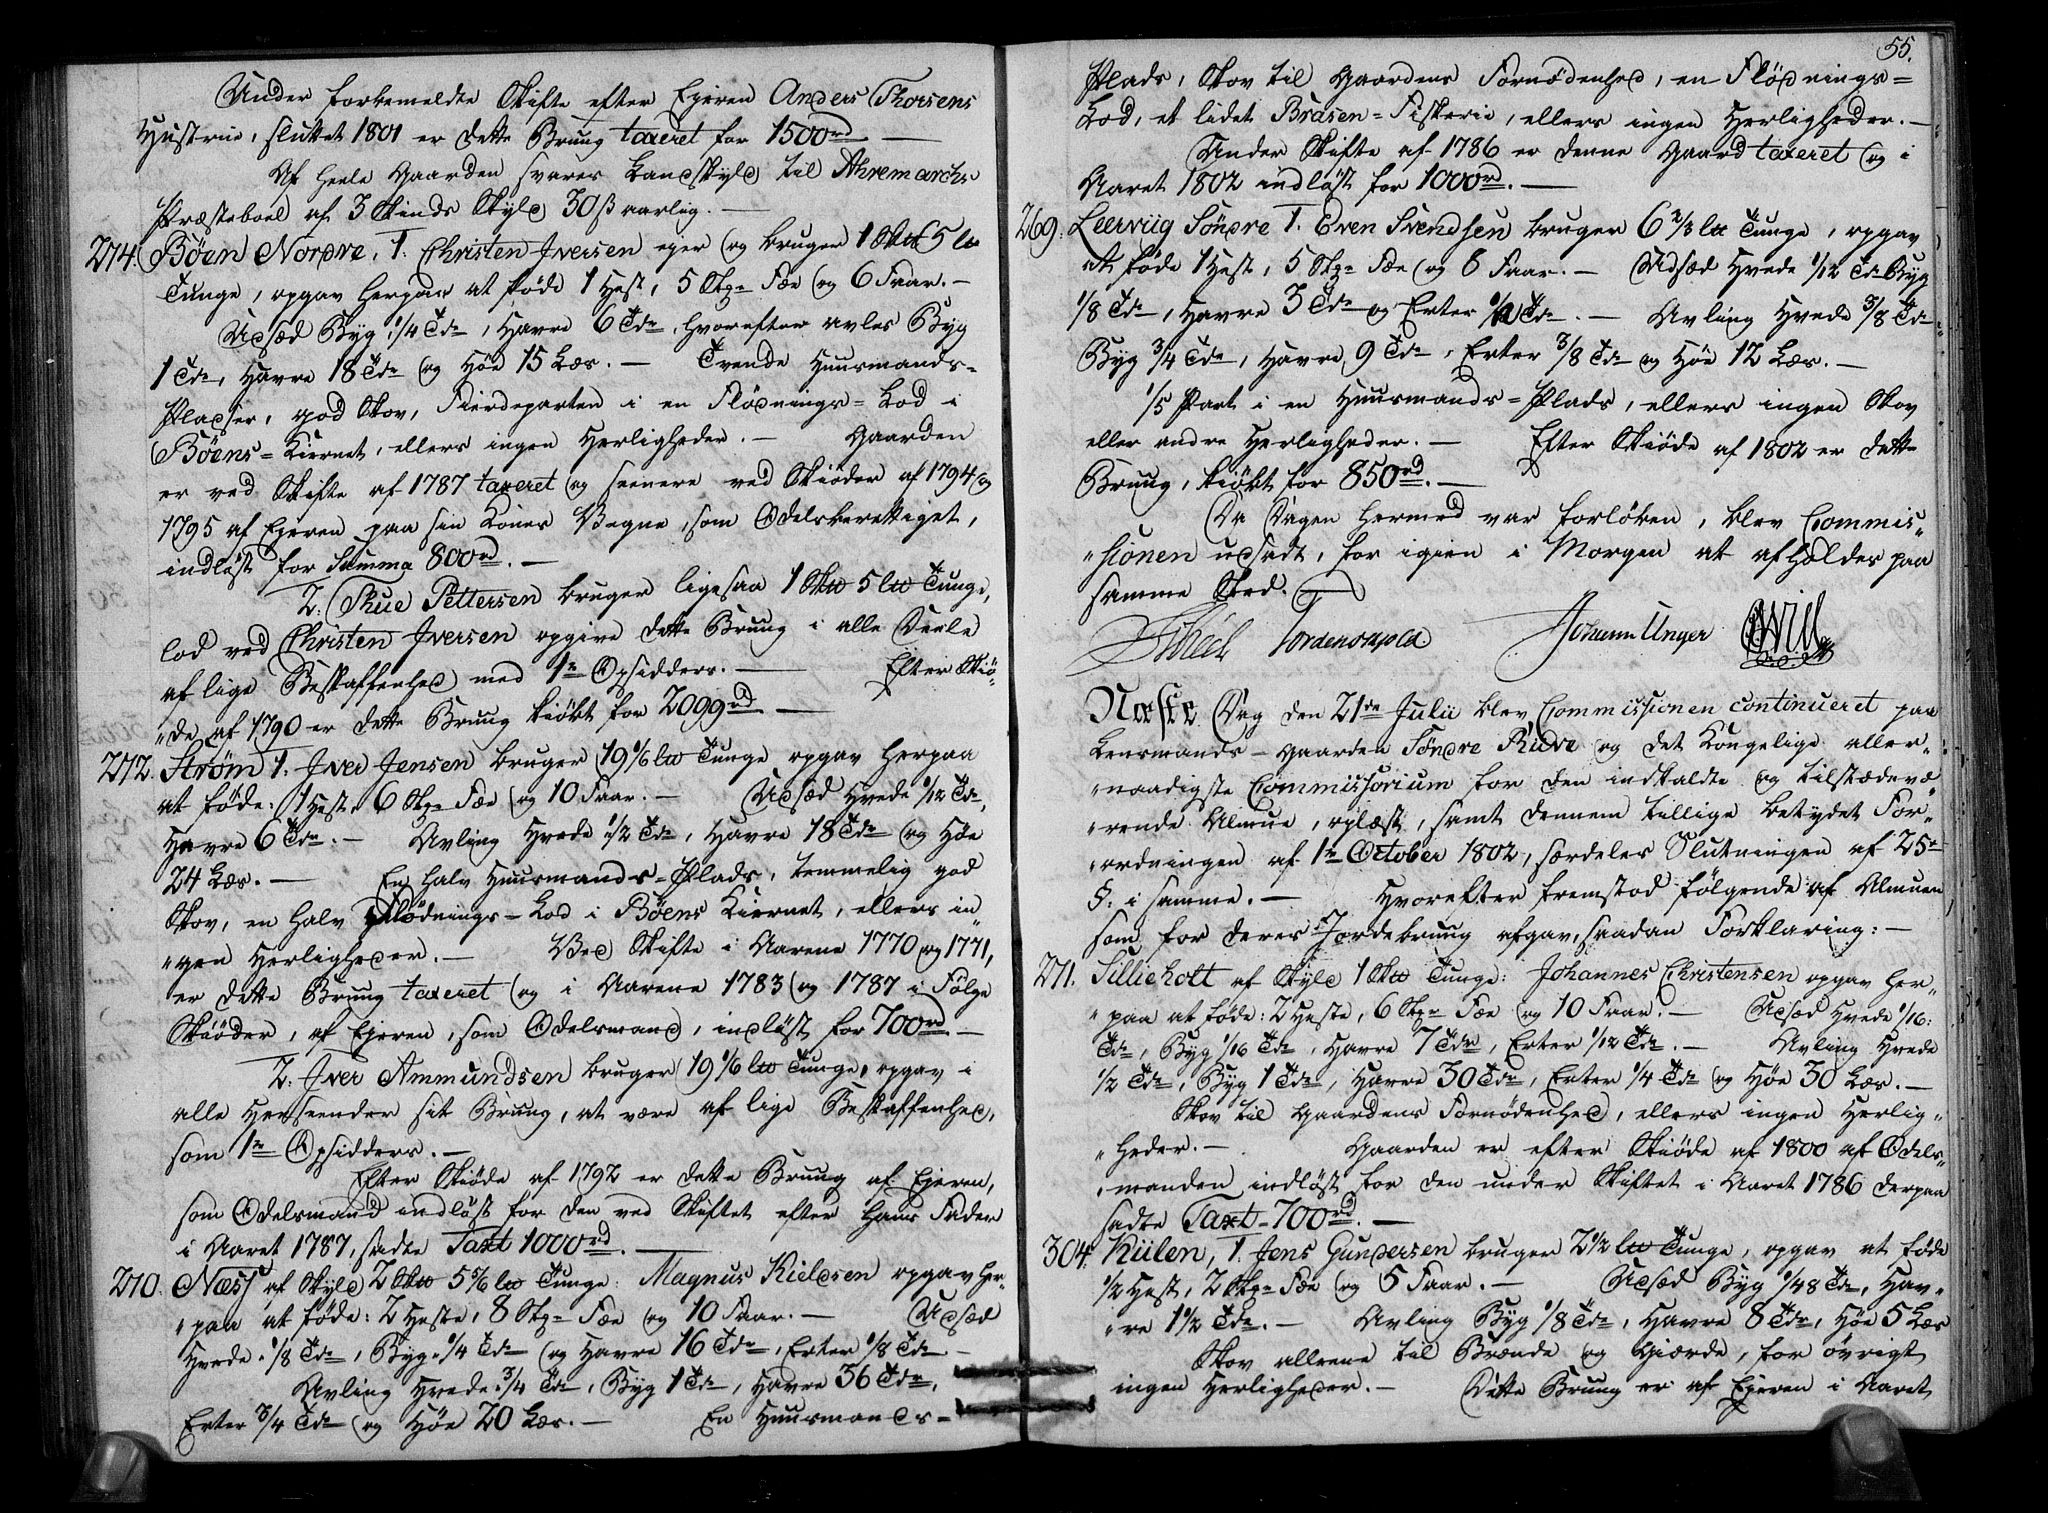 Under forbemeldte Skifte efter Ejeren Anders Thorsens
Hustrue, sluttet 1801 er dette Brug taxeret for 1500 rd —
Af heele Gaarden svares Landskyld til Ahremarchs
Præsteboel af 3 Skinds Skyld 30 ß aarlig. —
274. Bøen Nordre, 1. Christen Jversen eger og bruger 1 Skd 5 ld
Tunge, opgav herpaa at føde 1 Hest, 5 Stkr Fæe og 6 Faar. —
Udsæd Byg 1/4 Tdr, Havre 6 Tdr, hvorefter avles Byg
1 Tdr, Havre 18 Tdr og Høe 15 Læs. — Tvende Huusmands-
Pladser, god Skov, Fierdeparten i en Flødnings= Lod i
Bøens= Kiernet, ellers ingen Herligheder. — Gaarden
er ved Skifte af 1787 taxeret og seenere ved Skiøder af 1794 og
1795 af Ejeren paa sin Kones Vegne, som Odelsberettiget,
indløst for Summa 800 rd. —
2. Thue Pettersen bruger ligesaa 1 Skd 5 ld Tunge,
lod ved Christen Jversen opgive dette Brug i alle Deele
af lige Beskaffenhed med 1te Opsidders. — Efter Skiø„
„de af 1790 er dette Brug kiøbt for 2099 rd —
272. Strøm 1. Jver Jensen bruger 19 1/6 ld Tunge opgav herpaa
at føde: 1 Hest, 6 Stkr Fæe og 10 Faar. — Udsæd Hvede 1/12 Tdr,
Havre 6 Tdr. — Avling Hvede 1/2 Tdr, Havre 18 Tdr og Høe
24 Læs. — En halv Huusmands=Plads, temmelig god
Skov, en halv Flødnings-Lod i Bøens Kiernet, ellers in„
„gen Herligheder. — Ved Skifte i Aarene 1770 og 1771,
er dette Brug taxeret og i Aarene 1783 og 1787 i Følge
Skiøder, af Ejeren, som Odelsmand, indløst for 700 rd —
2. Jver Ammundsen bruger 19 1/6 ld Tunge, opgav i
alle Henseender sit Brug, at være af lige Beskaffenhed,
som 1te Opsidders. —
Efter Skiøde af 1792 er dette Brug af Ejeren,
som Odelsmand indløst for den ved Skiftet efter hans Fader
i Aaret 1787, satte Taxt 1000 rd. —
270. Næss af Skyld 2 Skd 5 5/6 ld Tunge: Magnus Kieldsen opgav her„
„paa at føde: 2 Heste, 8 Stkr Fæe og 10 Faar. — Udsæd
Hvede 1/8 Tdr, Byg 1/4 Tdr og Havre 16 Tdr, Erter 1/8 Tdr —
Avling Hvede 3/4 Tdr, Byg 1 Tdr, Havre 36 Tdr,
Erter 3/4 Tdr og Høe 20 Læs. — En Huusmands=
55.
Plads, Skov til Gaardens Fornødenhed, en Flødnings=
Lod, et lidet Brasen=Fiskerie, ellers ingen Herligheder. —
Under Skifte af 1786 er denne Gaard taxeret og i
Aaret 1802 indløst for 1000 rd. —
269. Leerviig Søndre 1. Even Svendsen bruger 6 2/3 ld Tunge, opgav
at føde 1 Hest, 5 Stkr Fæe og 6 Faar. — Udsæd Hvede 1/12 Tdr Byg
1/8 Tdr, Havre 3 Tdr og Erter 1/12 Tdr. — Avling Hvede 3/8 Tdr
Byg 3/4 Tdr, Havre 9 Tdr, Erter 3/8 Tdr og Høe 12 Læs. —
1/5 Part i en Huusmands=Plads, ellers ingen Skov
eller andre Herligheder. — Efter Skiøde af 1802 er dette
Brug, kiøbt for 850 rd. —
Da Dagen hermed var forløben, blev Commis„
„sionen udsadt, for igien i Morgen at afholdes paa
samme Sted.
Tordenskjold. Johann Unger
Næste Dag den 21de Julii blev Commissionen continueret paa
Lensmands-Gaarden Søndre Rude og det Kongelige aller„
„naadigste Commissorium for den indkaldte og tilstædevæ„
„rende Almue, oplæst, samt dennem tillige betydet For„
„ordningen af 1te October 1802, særdeles Slutningen af 25de
§. i samme. — Hvorefter fremstod følgende af Almuen
som for deres Jordebrug afgav, saadan Forklaring: —
271. Sillieholt af Skyld 1 Skd Tunge: Johannes Christensen opgav her„
„paa at føde: 2 Heste, 6 Stkr Fæe og 10 Faar. — Udsæd Hvede 1/16:
Tdr, Byg 1/16 Tdr, Havre 7 Tdr, Erter 1/12 Tdr. — Avling Hvede
1/2 Tdr, Byg 1 Tdr, Havre 30 Tdr, Erter 1/4 Tdr og Høe 30 Læs. —
Skov til Gaardens Fornødenhed, ellers ingen Herlig„
„heder. — Gaarden er efter Skiøde af 1800 af Odels„
„manden indløst for den under Skiftet i Aaret 1786 derpaa
sadte Taxt-700 rd. —
304. Kiilen, 1. Jens Gundersen bruger 2 1/2 ld Tunge, opgav at føde
1/2 Hest, 2 Stkr Fæe og 5 Faar. — Udsæd Byg 1/48 Tdr, Hav„
„re 1 1/2 Tdr. — Avling Byg 1/8 Tdr, Havre 8 Tdr, Høe 5 Læs
Skov alleene til Brænde og Gierde, for øvrigt
ingen Herligheder. — Dette Brug er af Ejeren i Aaret